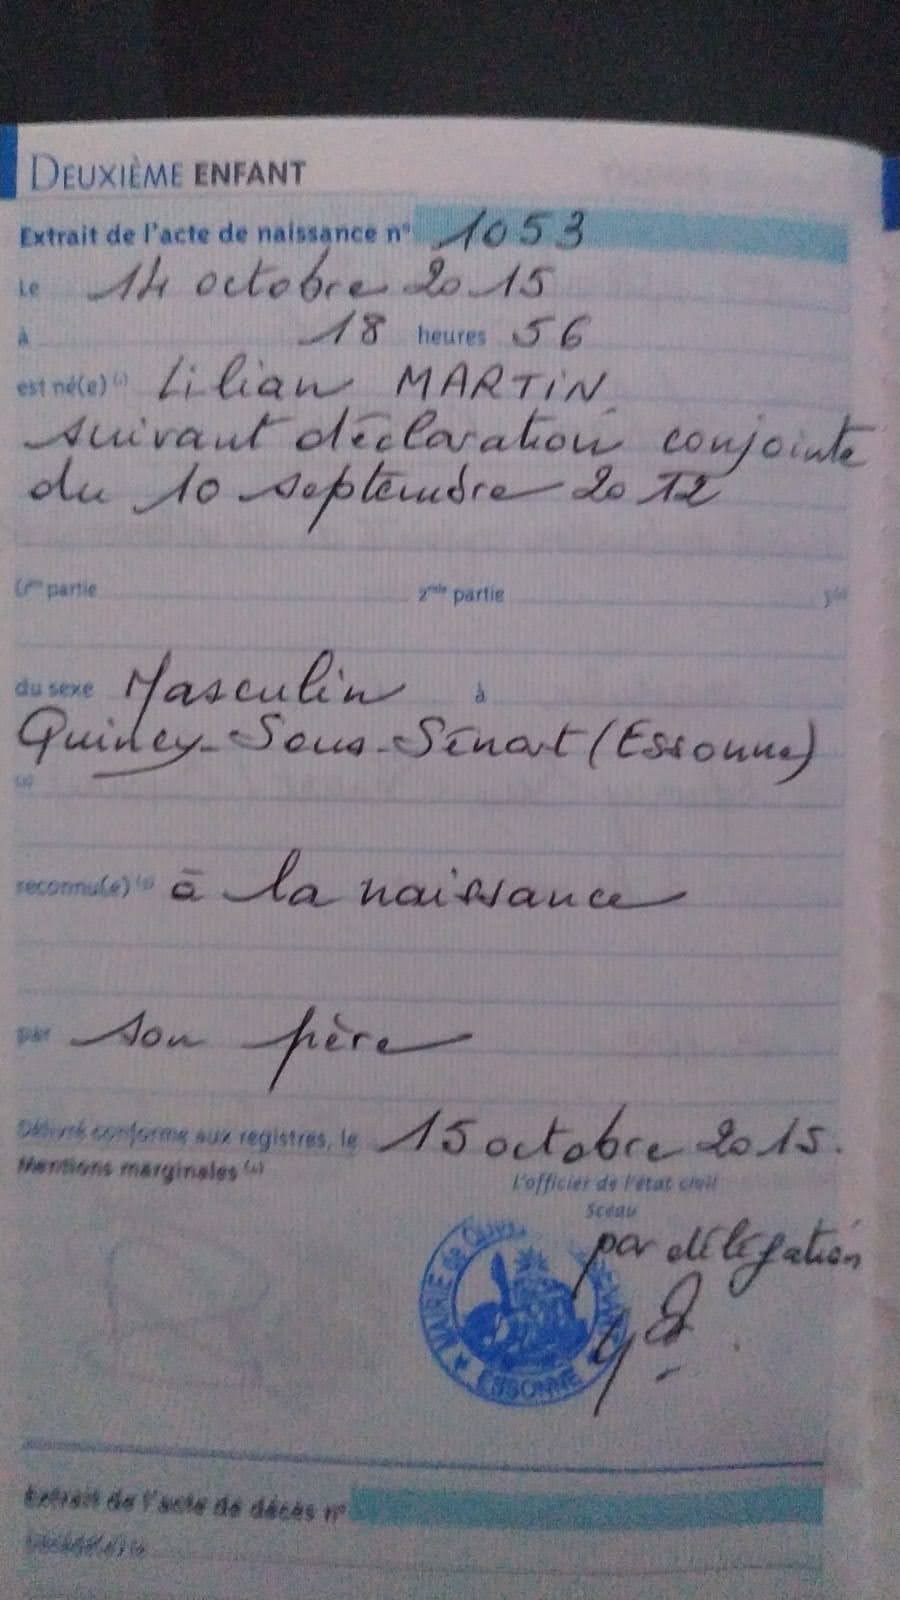 DEUXIÈME ENFANT
Extrait de l'acte de naissance n° 1053
Le 14 octobre 2015
à 18 heures 56
est né(e) Lilian MARTIN
suivant déclaration conjointe
du 10 septembre 2012
partie 2nde partie
du sexe Masculin à
Quincy-Sous-Sénart (Essonne)
reconnu(e) à la naissance
par son père
Délivré conforme aux registres, le 15 octobre 2015.
Mentions marginales
L'officier de l'état civil
Sceau
par délégation
MAIRIE de
ESSONNE
Extrait de l'acte de décès n°